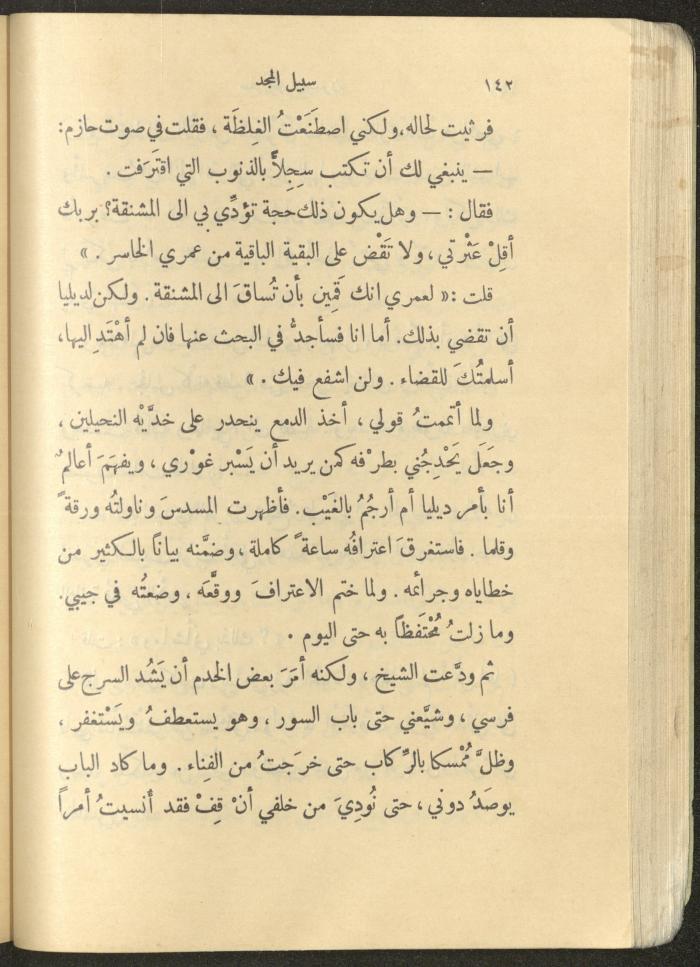 ١٤٢ سبيل المجد
فرثيت لحاله، ولكني اصطنَعْتُ الغِلظَة ، فقلت في صوت حازم:
— ينبغي لك أن تكتب سِجِلاًّ بالذنوب التي اقترَفت .
فقال : — وهل يكون ذلك حجة تؤدِّي بي الى المشنقة؟ بربك
أقِلْ عَثْرتي ، ولا تَقْض على البقية الباقية من عمري الخاسر . »
قلت :« لعمري انك قَمِين بأن تُساقَ الى المشنقة . ولكن لديليا
أن تقضي بذلك. أما انا فسأجدُّ في البحث عنها فان لم أهْتَدِ اليها،
أسلمتُكَ للقضاء . ولن اشفع فيك . »
ولما أتممتُ قولي ، أخذ الدمع ينحدر على خدَّيْه النحيلين ،
وجَعَلَ يَحْدِجُني بطرْفه كمن يريد أن يَسْبر غوْري ، ويفهَمَ أعالمٌ
أنا بأمر ديليا أم أرجُمُ بالغَيْب. فأظهرت المسدسَ وناولتُه ورقةً
وقلما . فاستغرقَ اعترافُه ساعةً كاملة ، وضمَّنه بياناً بالكثير من
خطاياه وجرائمه . ولما ختم الاعترافَ ووقَّعَه ، وضعتُه في جيبي.
وما زلتُ مُحْتَفظاً به حتى اليوم .
ثم ودَّعت الشيخ ، ولكنه أمَرَ بعض الخدم أن يَشُد السرج على
فرسي ، وشيَّعني حتى باب السور ، وهو يستعطفُ ويَسْتغفر ،
وظلَّ مُمْسكا بالرِّكاب حتى خرَجتُ من الفِناء . وما كاد الباب
يوصَدُ دوني ، حتى نُودِيَ من خلفي أنْ قِفْ فقد أنسيتُ أمراً